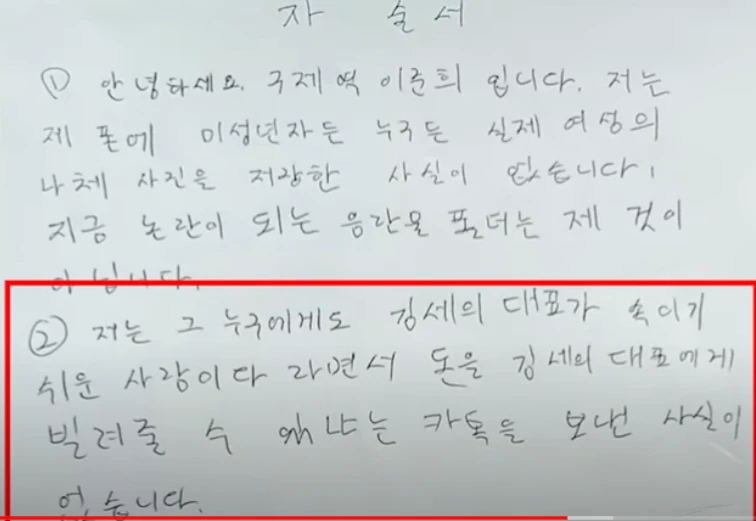 자 술 서
① 안녕하세요. 구제역 이준희 입니다. 저는
제 폰에 미성년자든 누구든 실제 여성의
나체 사진을 저장한 사실이 없습니다.
지금 논란이 되는 음란물 폴더는 제 것이
아닙니다.
② 저는 그 누구에게도 김세의 대표가 속이기
쉬운 사람이다 라면서 돈을 김세의 대표에게
빌려줄 수 있냐는 카톡을 보낸 사실이
없습니다.